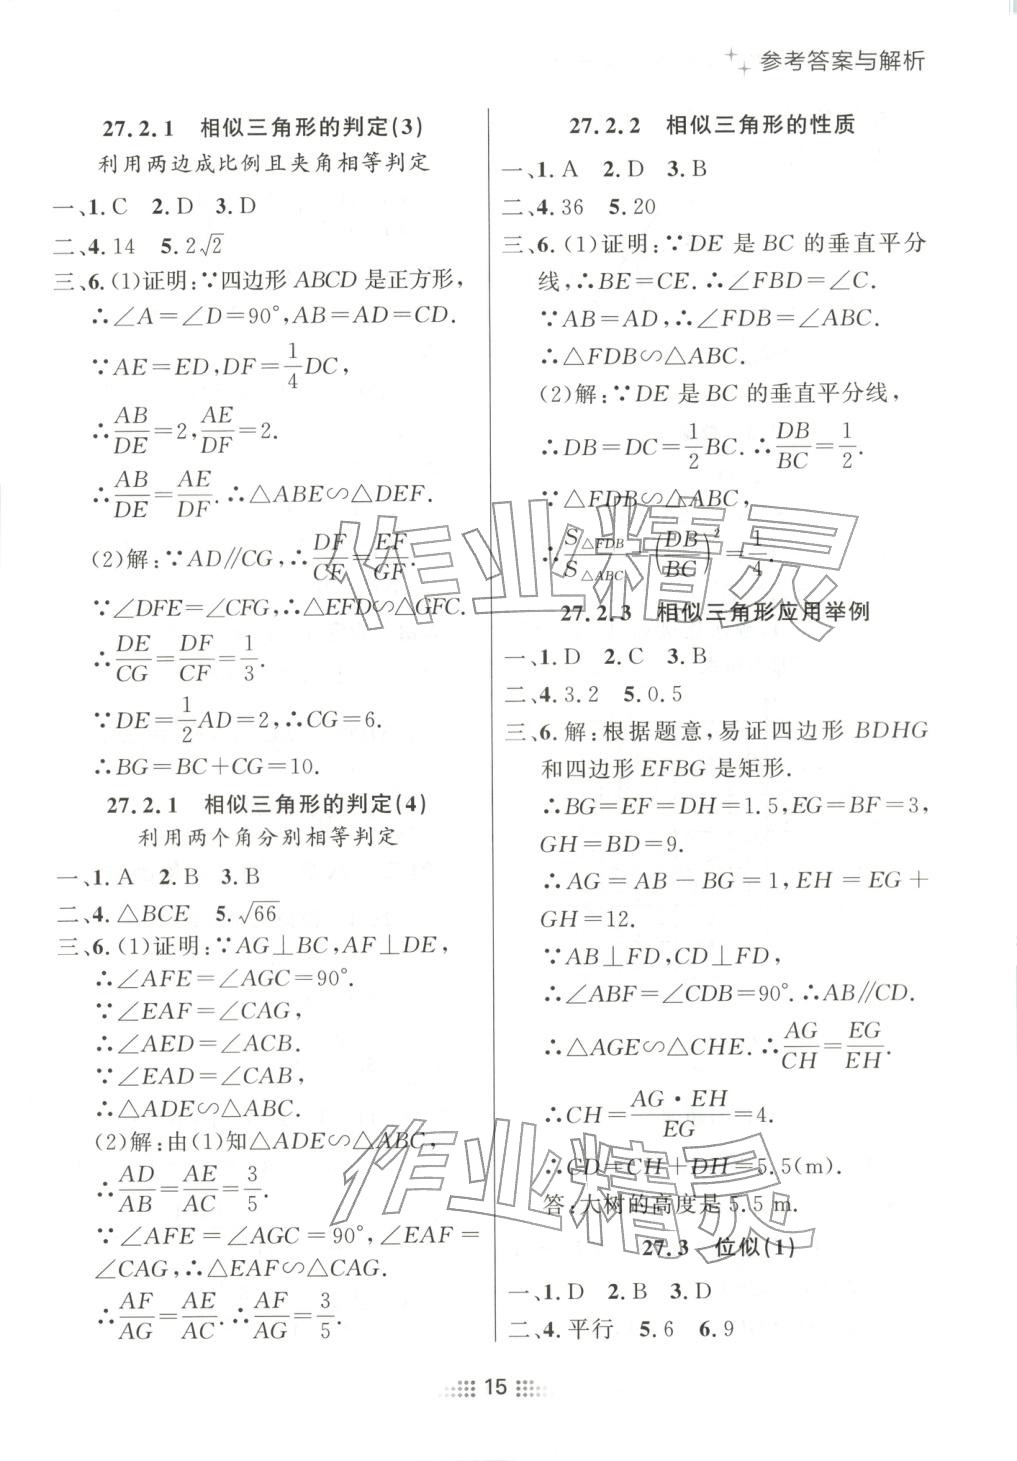 参考答案与解析
27.2.1 相似三角形的判定(3)
利用两边成比例且夹角相等判定
一、1. C 2. D 3. D
二、4. 14 5. 2√2
三、6. (1)证明:∵四边形 ABCD 是正方形,
∴∠A=∠D=90°,AB=AD=CD.
∵AE=ED,DF=1/4 DC,
∴AB/DE=2,AE/DF=2.
∴AB/DE=AE/DF.∴△ABE∽△DEF.
(2)解:∵AD∥CG,∴DF/CF=EF/GF.
∵∠DFE=∠CFG,∴△EFD∽△GFC.
∴DE/CG=DF/CF=1/3.
∵DE=1/2 AD=2,∴CG=6.
∴BG=BC+CG=10.
27.2.1 相似三角形的判定(4)
利用两个角分别相等判定
一、1. A 2. B 3. B
二、4. △BCE 5. √66
三、6. (1)证明:∵AG⊥BC,AF⊥DE,
∴∠AFE=∠AGC=90°.
∵∠EAF=∠CAG,
∴∠AED=∠ACB.
∵∠EAD=∠CAB,
∴△ADE∽△ABC.
(2)解:由(1)知△ADE∽△ABC,
∴AD/AB=AE/AC=3/5.
∵∠AFE=∠AGC=90°,∠EAF=
∠CAG,∴△EAF∽△CAG.
∴AF/AG=AE/AC.∴AF/AG=3/5.
27.2.2 相似三角形的性质
一、1. A 2. D 3. B
二、4. 36 5. 20
三、6. (1)证明:∵DE 是 BC 的垂直平分
线,∴BE=CE.∴∠FBD=∠C.
∵AB=AD,∴∠FDB=∠ABC.
∴△FDB∽△ABC.
(2)解:∵DE 是 BC 的垂直平分线,
∴DB=DC=1/2 BC.∴DB/BC=1/2.
∵△FDB∽△ABC,
∴S△FDB/S△ABC=(DB/BC)²=1/4.
27.2.3 相似三角形应用举例
一、1. D 2. C 3. B
二、4. 3.2 5. 0.5
三、6. 解:根据题意,易证四边形 BDHG
和四边形 EFBG 是矩形.
∴BG=EF=DH=1.5,EG=BF=3,
GH=BD=9.
∴AG=AB-BG=1,EH=EG+
GH=12.
∵AB⊥FD,CD⊥FD,
∴∠ABF=∠CDB=90°.∴AB∥CD.
∴△AGE∽△CHE.∴AG/CH=EG/EH.
∴CH=AG·EH/EG=4.
∴CD=CH+DH=5.5(m).
答:大树的高度是 5.5 m.
27.3 位似(1)
一、1. D 2. B 3. D
二、4. 平行 5. 6 6. 9
15
作业精灵
作业精灵